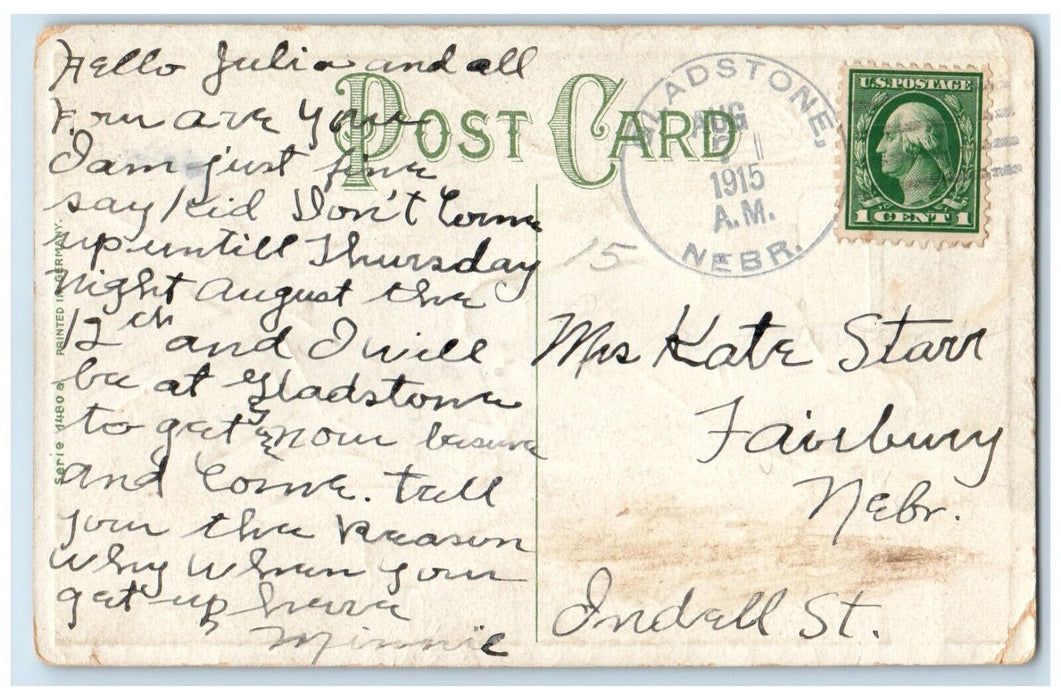 Hello Julia and all
How are you
I am just fine
say kid Don't Come
up untill Thursday
night August the
12th and I will
be at Gladstone
to get you besure
and Come. tell
you the Reason
why when your
get up here
Minnie
POST CARD
GLADSTONE,
AUG
1915
A.M.
NEBR.
U.S. POSTAGE
1 CENT 1
15
Mrs Kate Starr
Fairbury
Nebr.
Indell St.
Serie 1480 a PRINTED IN GERMANY.